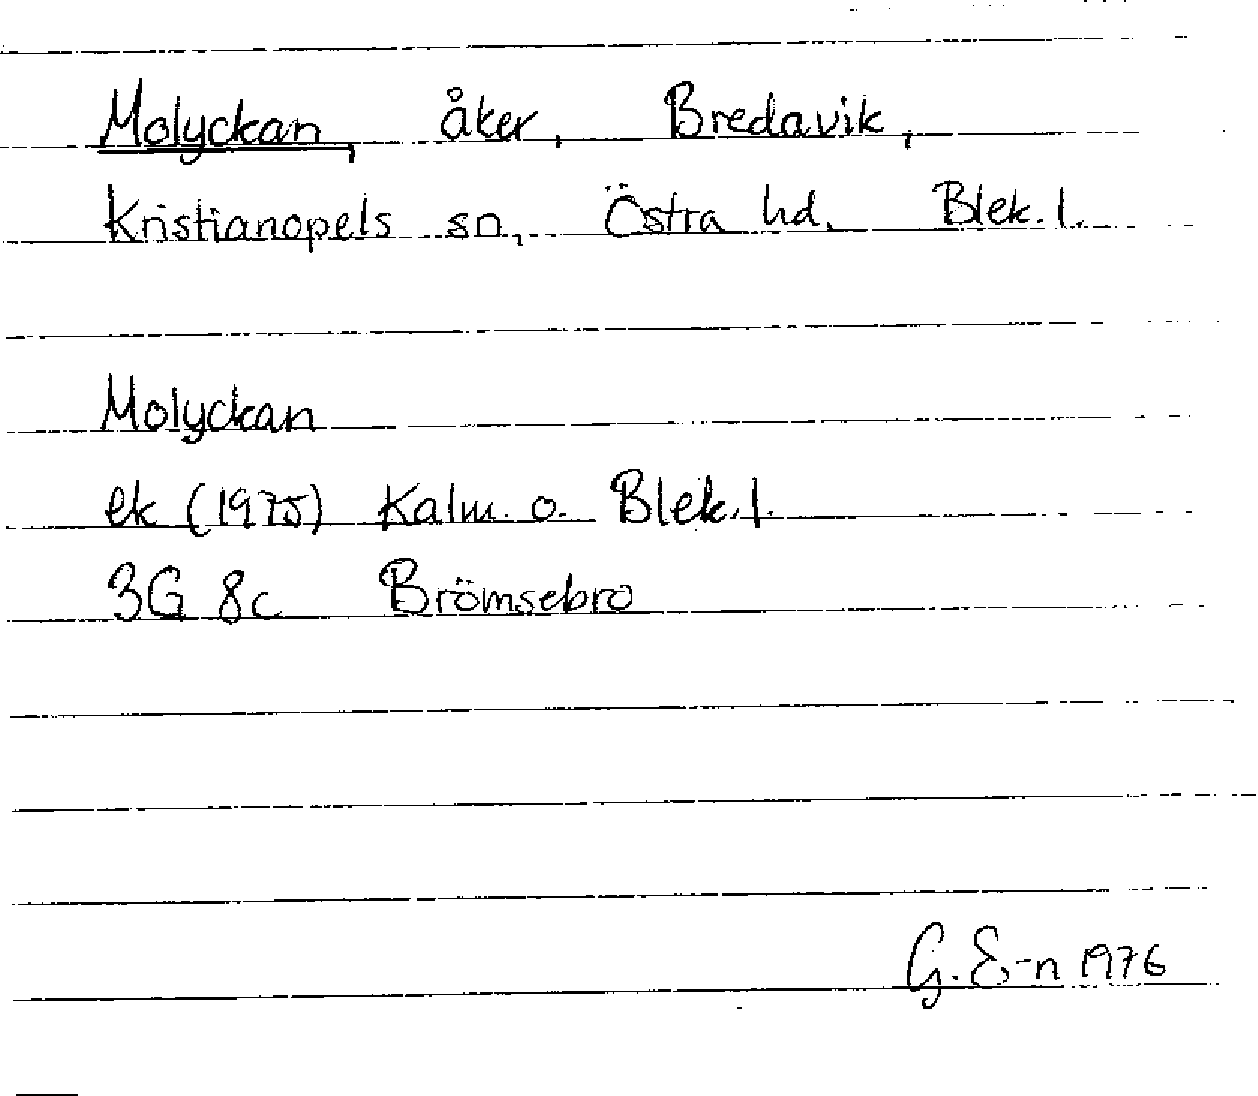 Molyckan, åker, Bredavik,
Kristianopels sn, Östra hd. Blek. l.
Molyckan
ek (1975) Kalm. o. Blek. l.
3G 8c Brömsebro
G. E-n 1976